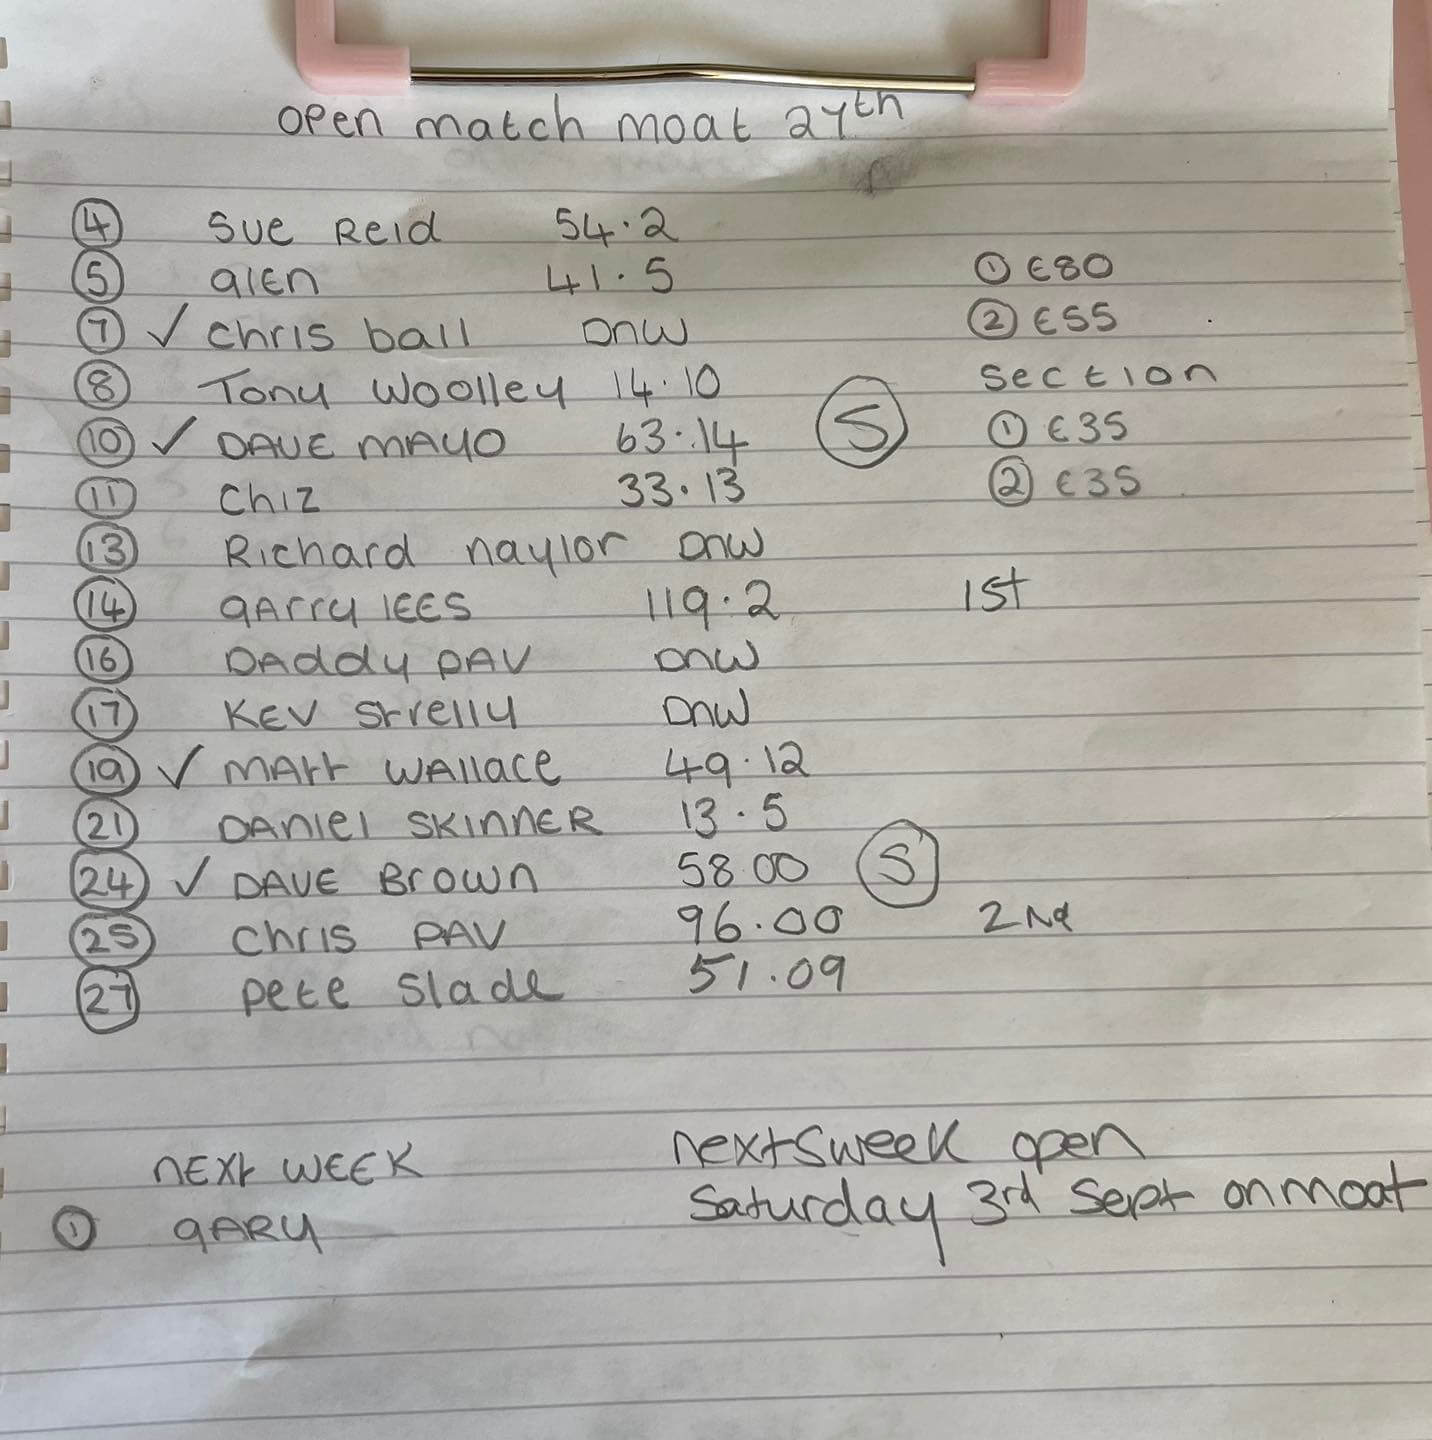 open match moat 27th
4 Sue Reid 54.2
5 glen 41.5 1 £80
7 ✓ chris ball DNW 2 £55
8 Tony Woolley 14.10 section
10 ✓ DAVE MAYO 63.14 S 1 £35
11 Chiz 33.13 2 £35
13 Richard naylor DNW
14 gArry lEES 119.2 1st
16 DAddy PAV DNW
17 KEV Strelly DNW
19 ✓ MAtt WAllace 49.12
21 DANiel SKINNER 13.5
24 ✓ DAVE Brown 58.00 S
25 Chris PAV 96.00 2Nd
27 pete Slade 51.09
nExt WEEK nextsweek open
Saturday 3rd Sept on moat
1 gARY